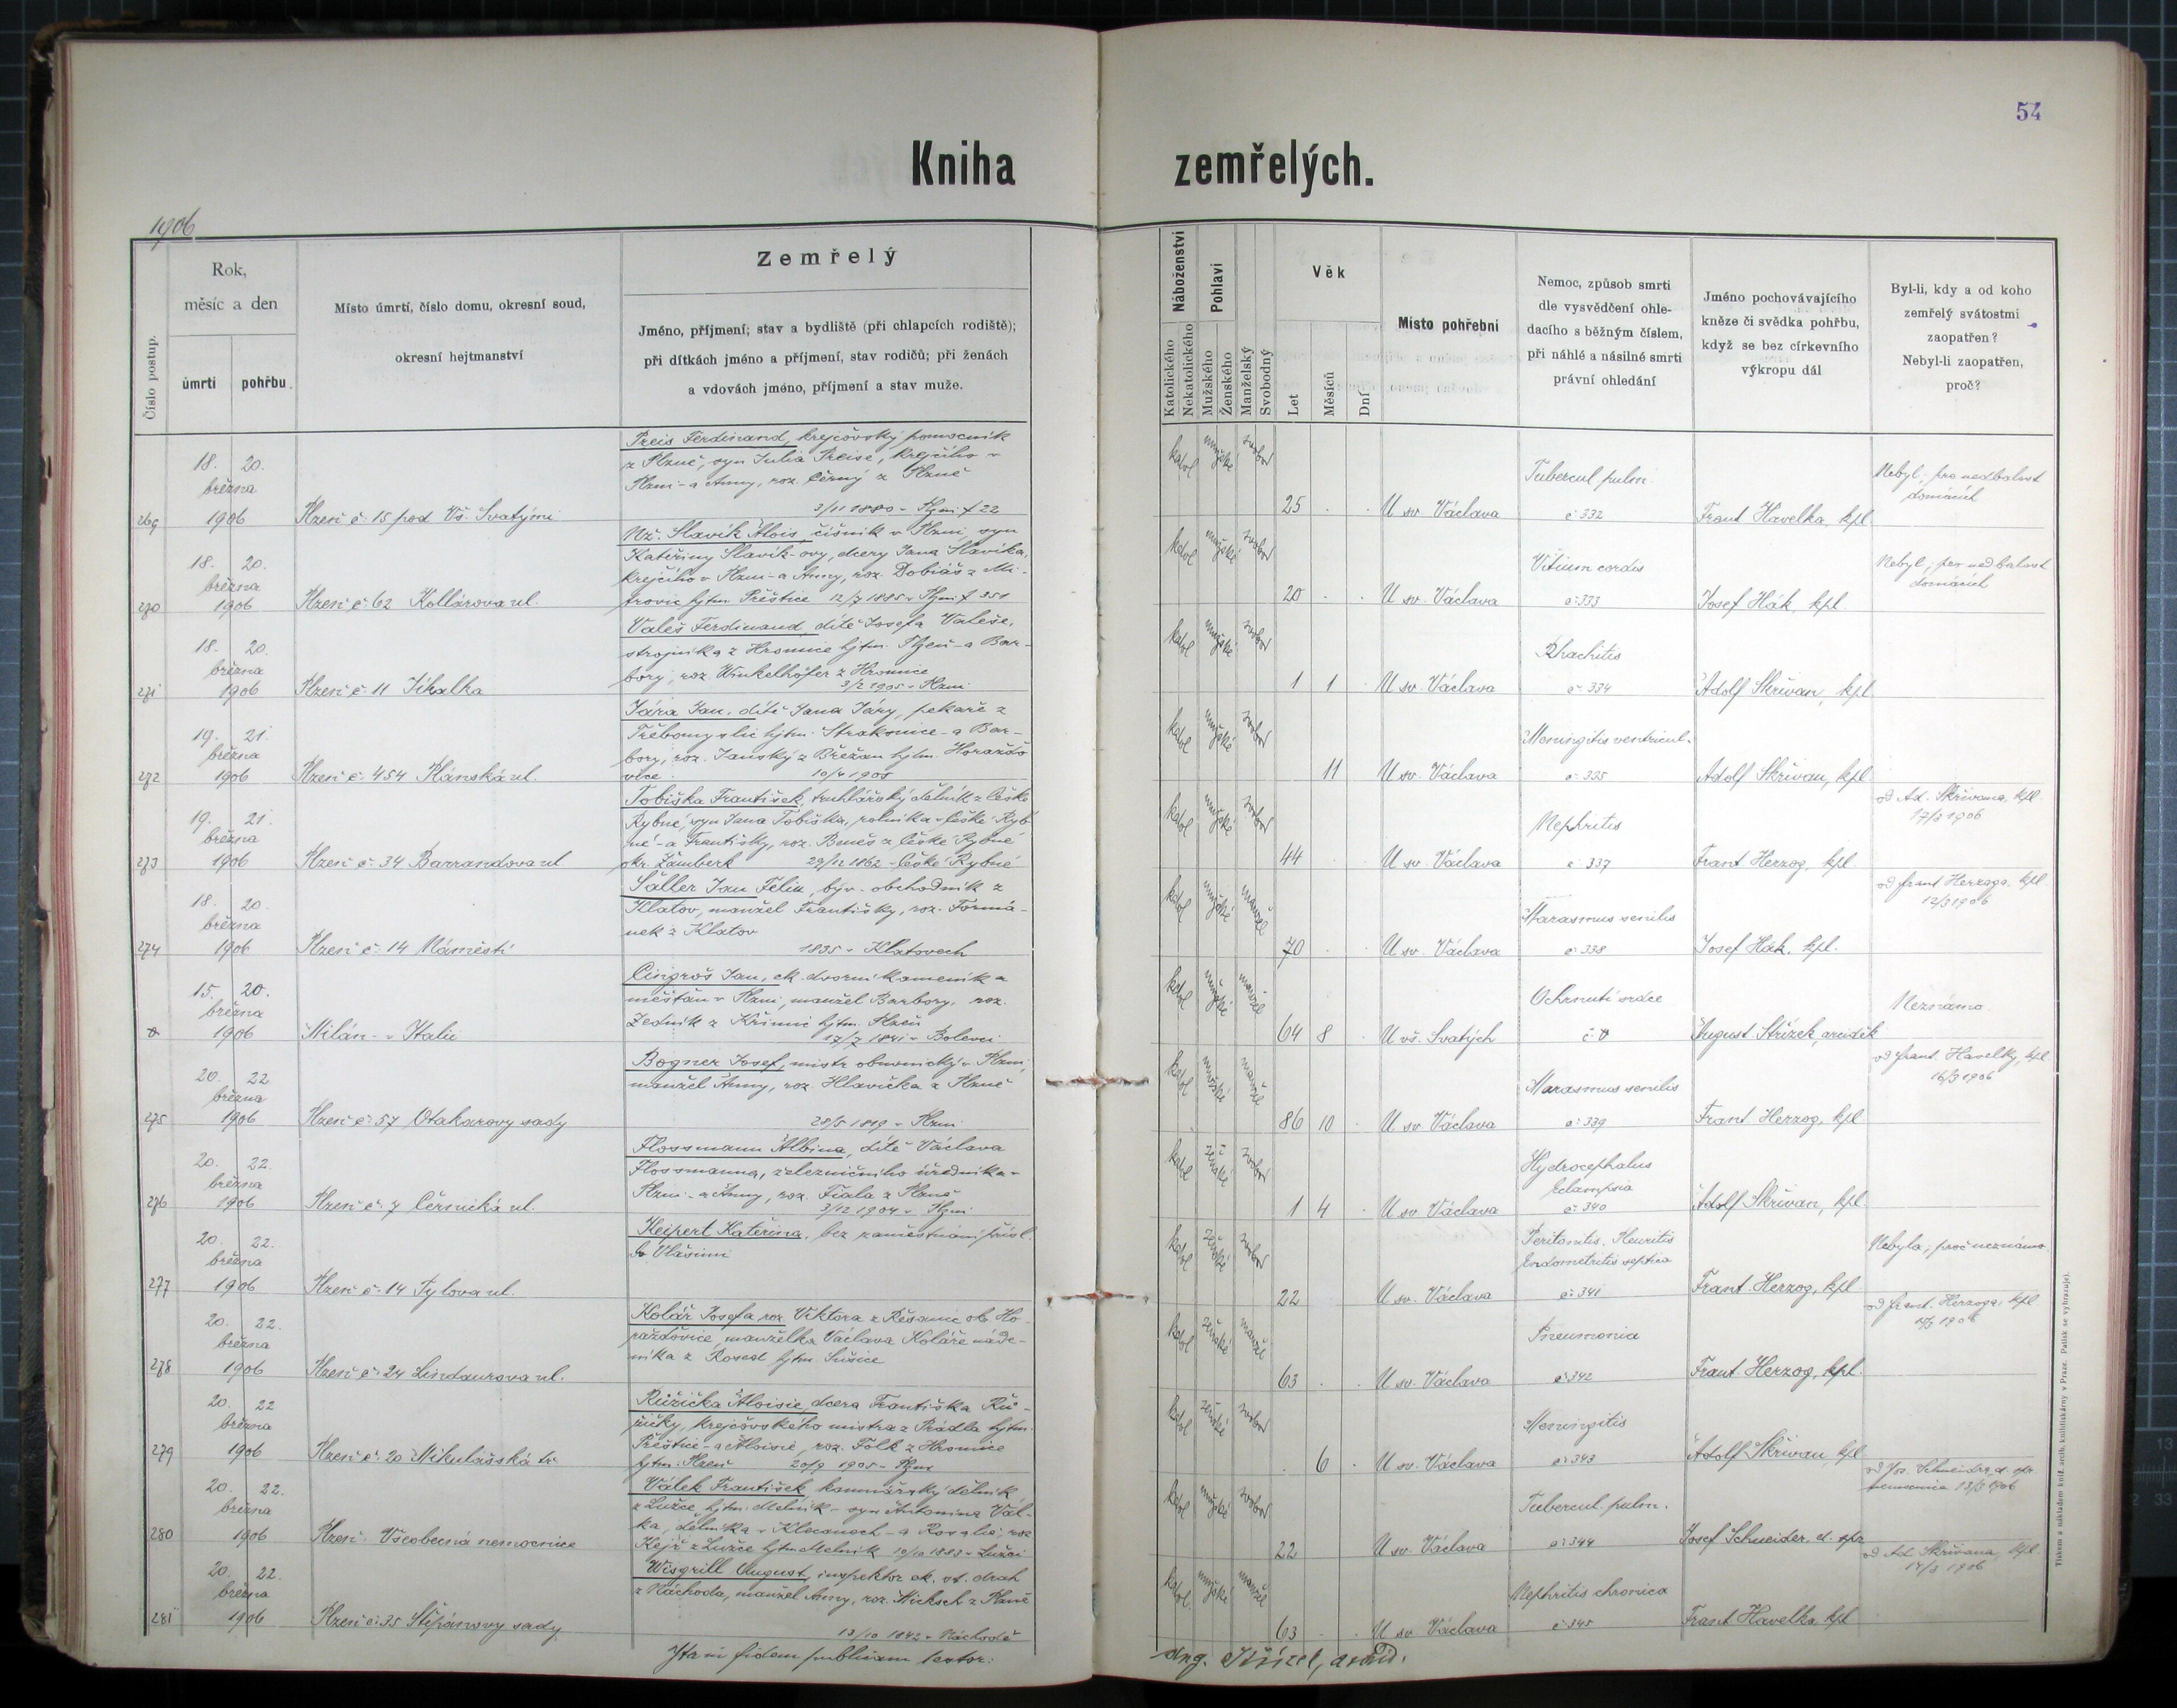 54
Kniha zemřelých.
1906
Číslo postup.
Rok,
měsíc a den
úmrtí
pohřbu
Místo úmrtí, číslo domu, okresní soud,
okresní hejtmanství
Zemřelý
Jméno, příjmení; stav a bydliště (při chlapcích rodiště);
při dítkách jméno a příjmení, stav rodičů; při ženách
a vdovách jméno, příjmení a stav muže.
Náboženství
Katolického
Nekatolického
Pohlaví
Mužského
Ženského
Manželský
Svobodný
Věk
Let
Měsíců
Dní
Místo pohřební
Nemoc, způsob smrti
dle vysvědčení ohle-
dacího s běžným číslem,
při náhlé a násilné smrti
právní ohledání
Jméno pochovávajícího
kněze či svědka pohřbu,
když se bez církevního
výkropu dál
Byl-li, kdy a od koho
zemřelý svátostmi
zaopatřen?
Nebyl-li zaopatřen,
proč?
269
18. 20.
března
1906
Plzeň č. 15 pod Vš. Svatými
Preis Ferdinand, krejčovský pomocník
z Plzně, syn Julia Preise, krejčího v
Plzni a Anny, roz. Černý z Plzně
3/11 1880 v Plzni f 22
katol mužské svobod
25 U sv. Václava
Tubercul pulm.
č 332
Frant Havelka, kpl
Nebyl; pro nedbalost
domácích
270
18. 20.
března
1906
Plzeň č. 62 Kollárova ul.
Nž. Slavík Alois, číšník v Plzni, syn
Kateřiny Slavík-ovy, dcery Jana Slavíka,
krejčího v Plzni a Anny, roz. Dobiáš z Mi-
trovic hjtm. Přeštice 12/7 1885 v Plzni f 351
katol mužské svobod
20 U sv. Václava
Vitium cordis
č 333
Josef Hák, kpl.
Nebyl; pro nedbalost
domácích
271
18. 20.
března
1906
Plzeň č. 11 Jíkalka
Valeš Ferdinand, dítě Josefa Valeše,
strojníka z Hromnic hjtm. Plzeň a Bar-
bory, roz. Winkelhöfer z Hromnic
3/2 1905 v Plzni
katol mužské svobod
1 1 U sv. Václava
Rhachitis
č 334
Adolf Skřivan, kpl
272
19. 21.
března
1906
Plzeň č. 454 Plánská ul.
Jára Jan, dítě Jana Járy, pekaře z
Třebomyslic hjtm. Strakonice a Bar-
bory, roz. Janský z Břežan hjtm. Horažďo
vice. 10/4 1905
katol mužské svobod
11 U sv. Václava
Meningitis ventricul.
č 335
Adolf Skřivan, kpl
273
19. 21.
března
1906
Plzeň č. 34 Barrandova ul
Tobiška František, truhlářský dělník z České
Rybné, syn Jana Tobiška, rolníka v České Ryb
né a Františky, roz. Beneš z České Rybné
okr. Žamberk 29/12 1862 v České Rybné
katol mužské svobod
44 U sv. Václava
Nephritis
č 337
Frant Herzog, kpl.
od Ad. Skřivana, kpl
17/3 1906
274
18. 20.
března
1906
Plzeň č. 14 Náměstí
Säller Jan Felix, býv. obchodník z
Klatov, manžel Františky, roz. Formá-
nek z Klatov
1835 v Klatovech
katol mužské manžel
70 U sv. Václava
Marasmus senilis
č 338
Josef Hák, kpl.
od frant Herzoga, kpl
12/3 1906
0
15. 20.
března
1906
Milán v Italii
Cingroš Jan, ck. dvorní kameník a
měšťan v Plzni, manžel Barbory, roz.
Zedník z Křimic hjtm. Plzeň
17/7 1841 v Bolevci
katol mužské manžel
64 8 U vš. Svatých
Ochrnutí srdce
č 0
August. Střízek, arciděk
Neznámo.
275
20. 22
března
1906
Plzeň č. 57 Otakarovy sady
Bogner Josef, mistr obuvnický v Plzni,
manžel Anny, roz. Hlavička z Plzně
20/5 1819 v Plzni
katol mužské manžel
86 10 U sv. Václava
Marasmus senilis
č 339
Frant Herzog, kpl.
od frant. Havelky, kpl
16/3 1906
276
20. 22.
března
1906
Plzeň č. 7 Černická ul.
Flossmann Albina, dítě Václava
Flossmanna, železničního úředníka v
Plzni a Anny, roz. Fiala z Plzně
3/12 1904 v Plzni
katol ženské svobod
1 4 U sv Václava
Hydrocephalus
Eclampsia
č 340
Adolf Skřivan, kpl.
277
20. 22.
března
1906
Plzeň č. 14 Tylova ul.
Keipert Kateřina, bez zaměstnání přísl.
do Vlašimi
katol ženské svobod
22 U sv. Václava
Peritonitis, Pleuritis
Endometritis septica
č 341
Frant Herzog, kpl
Nebyla; proč neznámo.
278
20. 22.
března
1906
Plzeň č. 24 Lindaurova ul.
Kolář Josefa, roz. Viktora z Řesanic ok. Ho
ražďovice, manželka Václava Koláře náde-
níka z Rosed hjtm. Sušice
katol ženské manžel
63 U sv. Václava
Pneumonia
č 342
Frant. Herzog, kpl.
od frant. Herzoga, kpl
1906
279
20. 22
března
1906
Plzeň č. 20 Mikulášská tř.
Růžička Aloisie, dcera Františka Rů-
žičky, krejčovského mistra z Prádla hjtm.
Přeštice a Aloisie, roz. Folk z Hromnice
hjtm. Plzeň 20/9 1905 v Plzni
katol ženské svobod
6 U sv. Václava
Meningitis
č 343
Adolf Skřivan, kpl
280
20. 22.
března
1906
Plzeň. Všeobecná nemocnice
Válek František, kamnářský dělník
z Lužce hjtm. Mělník syn Antonína Vál-
ka, dělníka v Klecanech a Rosalie, roz
Kejř z Lužce hjtm Mělník 10/10 1883 v Lužci
katol mužské svobod
22 U sv. Václava
Tubercul. pulm.
č 344
Josef Schneider, d. spr
od Jos. Schneidra, d. spr
13/3 1906
281
20. 22.
března
1906
Plzeň č. 35 Štěpánovy sady
Wisgrill August, inspektor ck. st. drah
z Náchoda, manžel Anny, roz. Micksch z Plzně
13/10 1842 v Náchodě
katol mužské manžel
63 U sv Václava
Nephritis chronica
č 345
Frant Havelka, kpl
od Ad. Skřivana, kpl.
17/3 1906
Ita in fidem publicam testor:
Aug. Střízek, arcid.
Tiskem a nákladem kníž. arcib. knihtiskárny v Praze. Patisk se vyhrazuje).